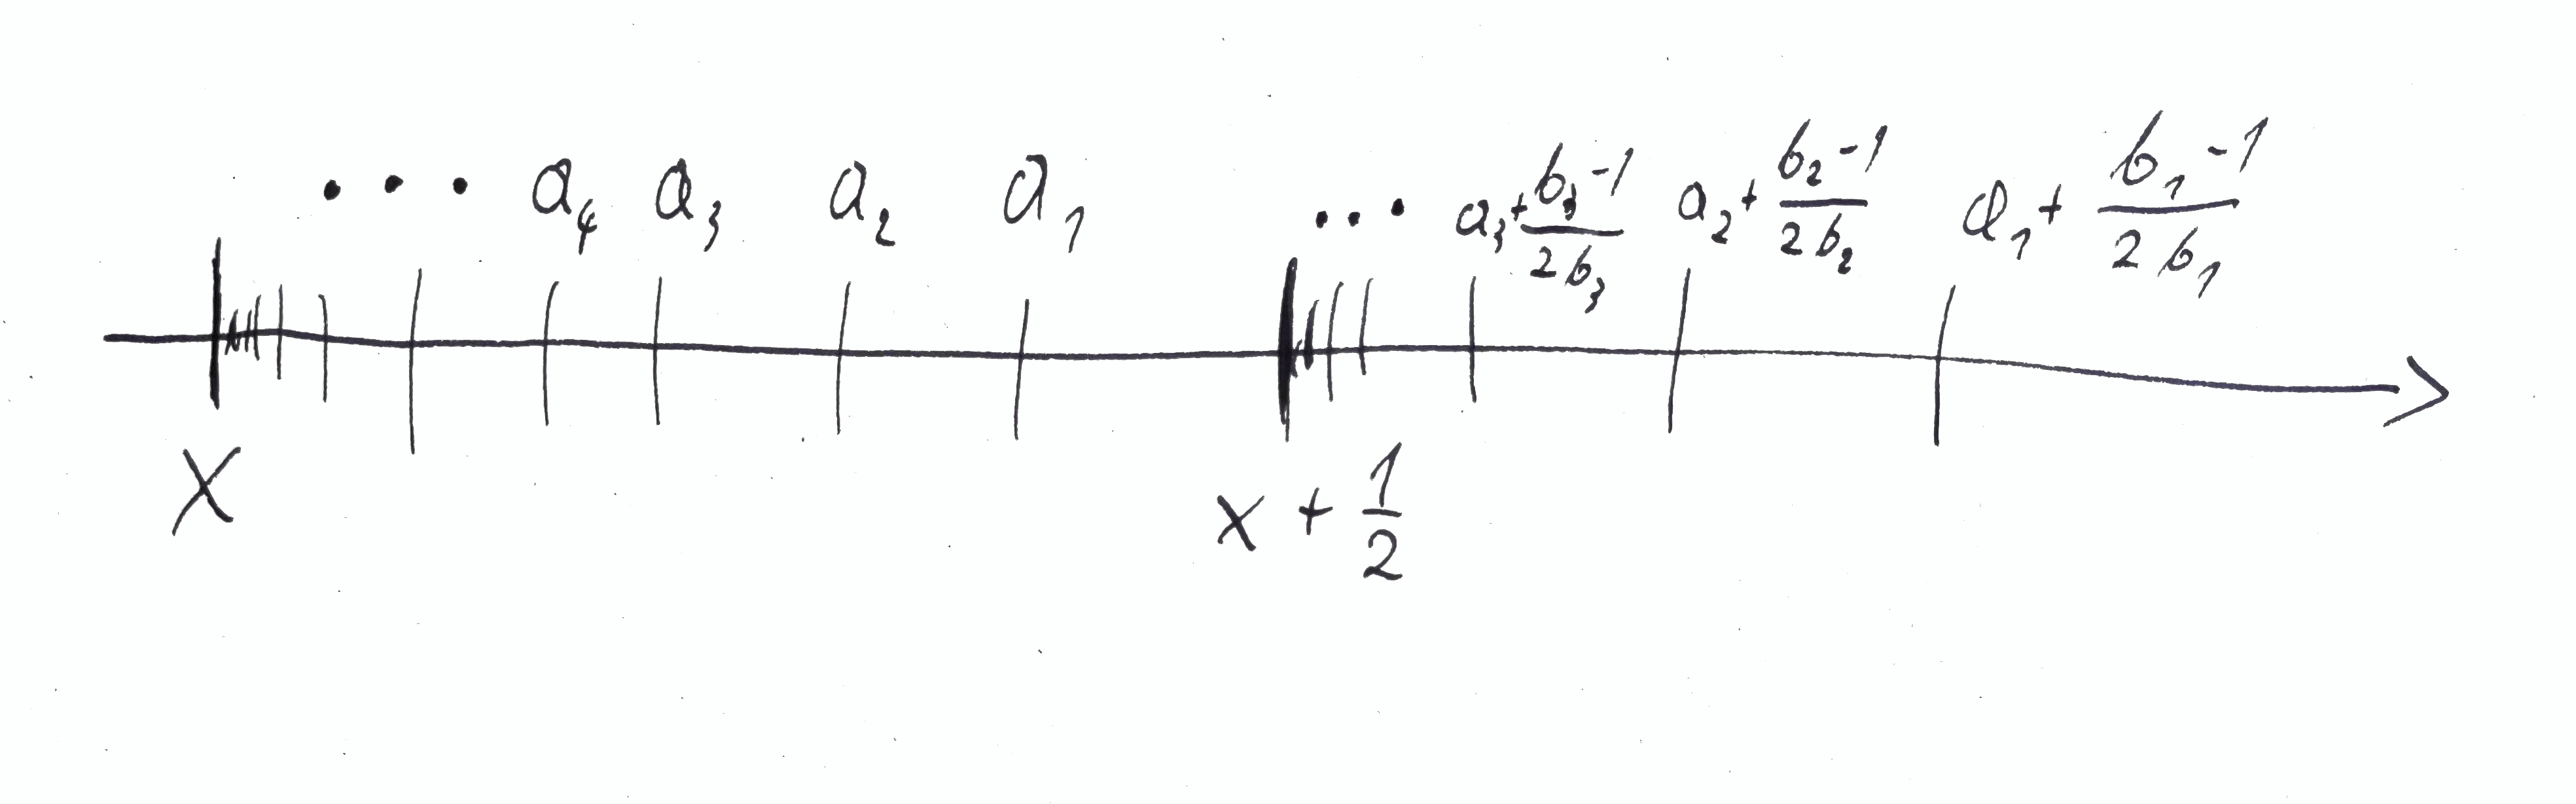 • • • a₄ a₃ a₂ a₁ ... a₃+(b₃-1)/(2b₃) a₂+(b₂-1)/(2b₂) a₁+(b₁-1)/(2b₁)
X x + 1/2